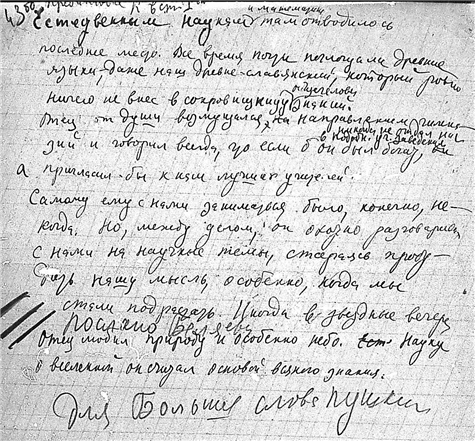 и математике
Естественным наукам там отводилось
последнее место. Все время почти поглощали древние
языки, даже наш древне-славянский, который ровно
ничего не внес в сокровищницу знаний.
Отец от души возмущался, направлением гимна-
зий и говорил всегда, что если б он был богат, 
а пригласил бы к нам лучших учителей.
Самому ему с нами заниматься было, конечно, не-
когда. Но, между делом, он охотно разговаривал
с нами на научные темы, стараясь пробу-
дить нашу мысль, особенно, когда мы
стали подрастать. Иногда в звездные вечера
послано Беляеву
Отец любил природу и особенно небо. Науку
о вселенной он считал основой всякого знания.
Для Больше слова пушкин